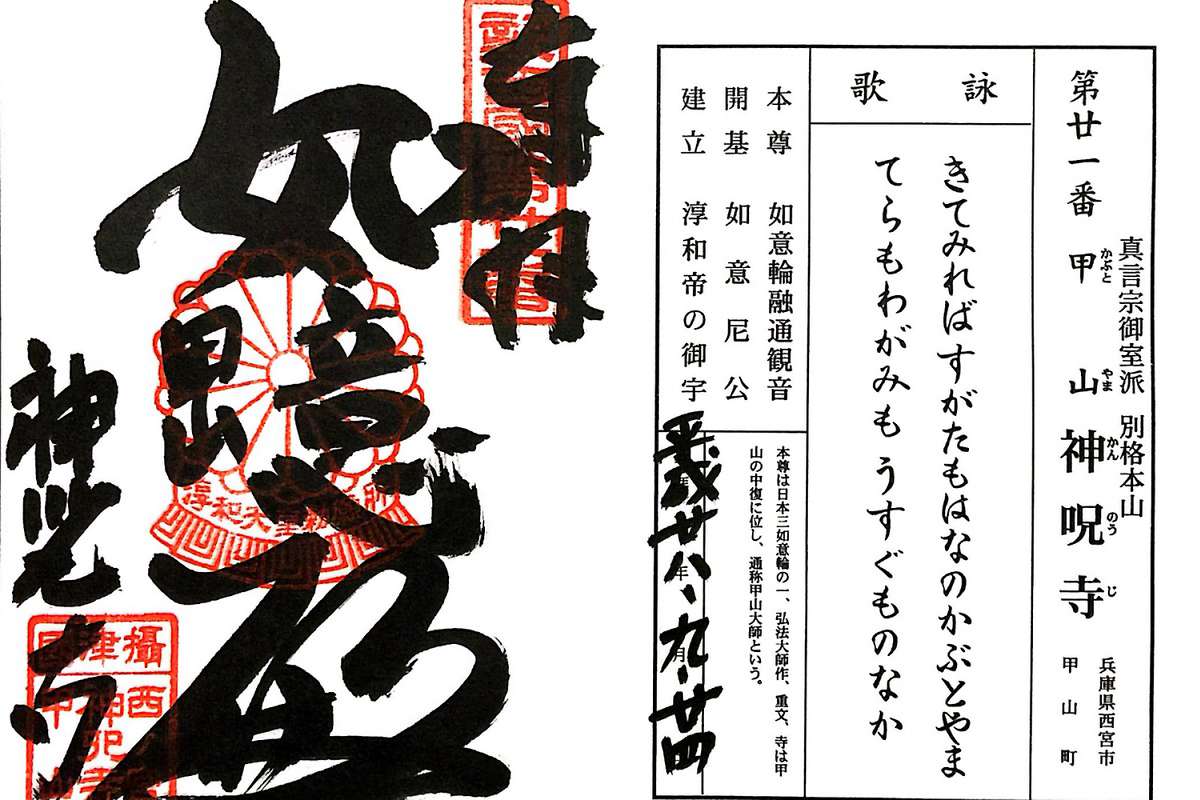 真言宗御室派 別格本山
第廿一番 甲山 神呪寺
かぶと やま かん のう じ
兵庫県西宮市
甲山町
詠歌
きてみればすがたもはなのかぶとやま
てらもわがみもうすぐものなか
本尊 如意輪融通観音
開基 如意尼公
建立 淳和帝の御宇
本尊は日本三如意輪の一、弘法大師作、重文、寺は甲
山の中復に位し、通称甲山大師という。
平成廿八年九月廿四
奉拝
如意
甲山
神呪寺
攝津國